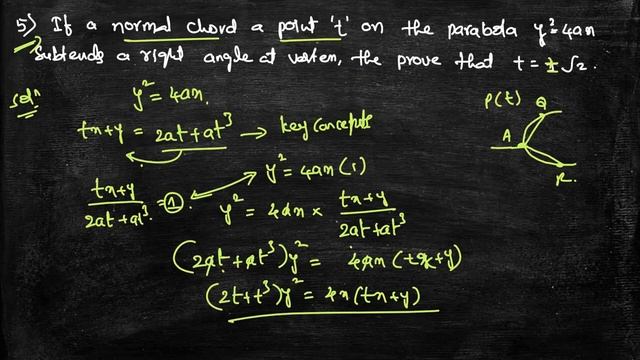 5) If a normal chord a point 't' on the parabola y² = 4ax
Subtends a right angle at vertex, the prove that t = ± √2.
Solⁿ
y² = 4ax.
tx+y = 2at+at³ → key concepts
P(t) Q
A
R.
y² = 4ax (1)
(tx+y)/(2at+at³) = 1
y² = 4ax × (tx+y)/(2at+at³)
(2at+at³)y² = 4ax(tx+y)
(2t+t³)y² = 4x(tx+y)